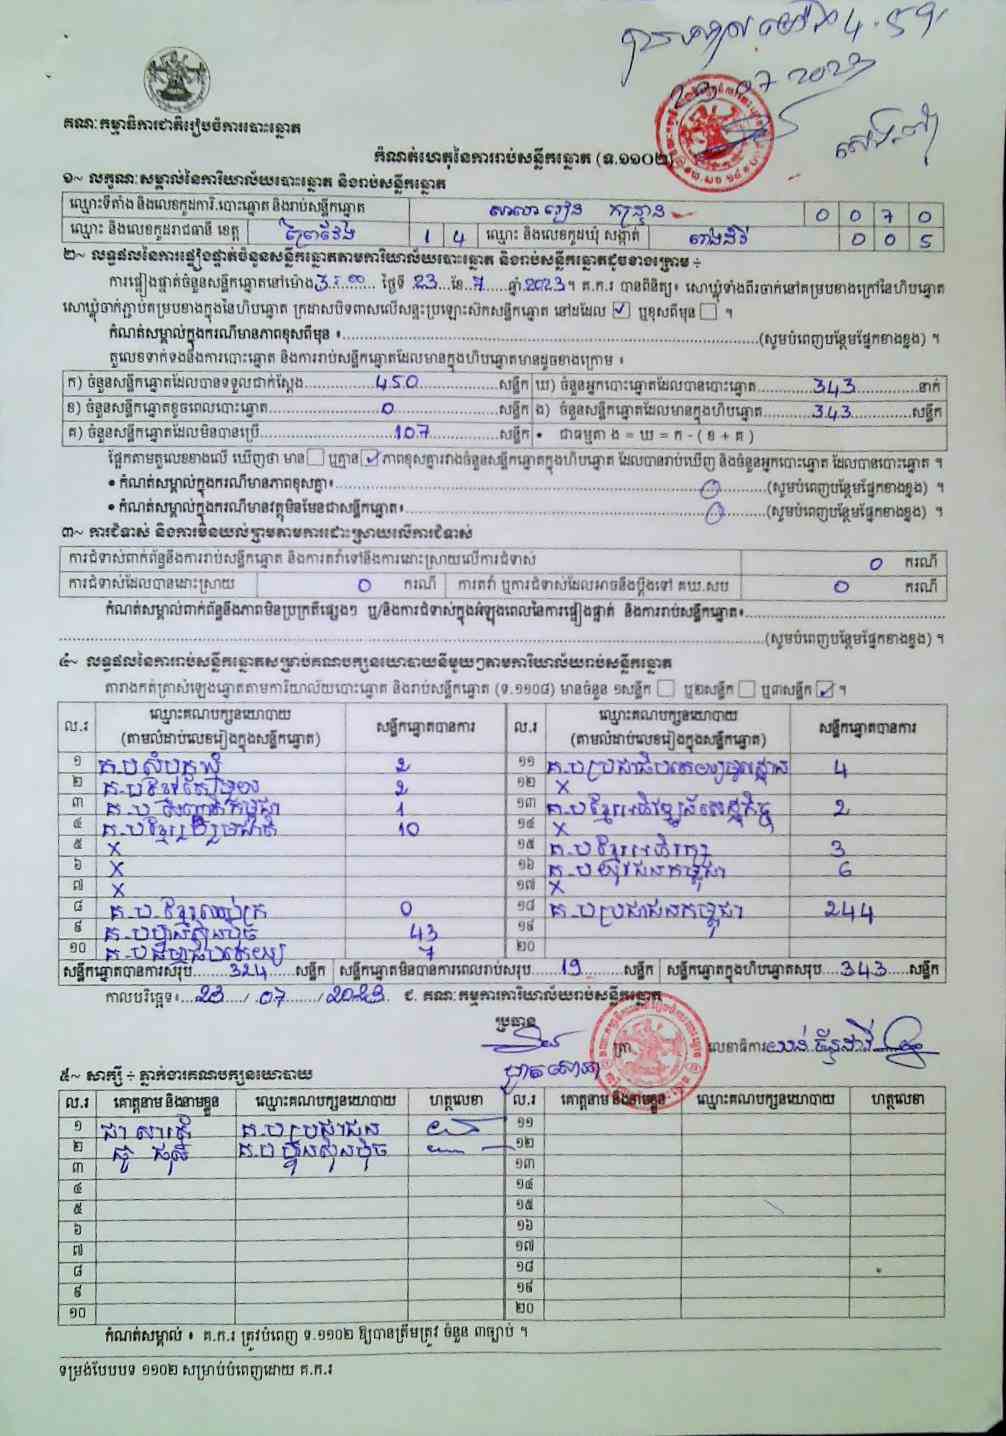 4.59
23 07 2023
គណៈកម្មាធិការជាតិរៀបចំការបោះឆ្នោត
កំណត់ហេតុនៃការរាប់សន្លឹកឆ្នោត (ទ.១១០២)
១~ លក្ខណៈសម្គាល់នៃការិយាល័យបោះឆ្នោត និងរាប់សន្លឹកឆ្នោត
ឈ្មោះទីតាំង និងលេខកូដការិ.បោះឆ្នោត និងរាប់សន្លឹកឆ្នោត សាលារៀន 0 0 7 0
ឈ្មោះ និងលេខកូដរាជធានី ខេត្ត ព្រៃវែង 1 4 ឈ្មោះ និងលេខកូដឃុំ សង្កាត់ 0 0 5
២~ លទ្ធផលនៃការផ្ទៀងផ្ទាត់ចំនួនសន្លឹកឆ្នោតតាមការិយាល័យបោះឆ្នោត និងរាប់សន្លឹកឆ្នោតដូចខាងក្រោម ÷
ការផ្ទៀងផ្ទាត់ចំនួនសន្លឹកឆ្នោតនៅម៉ោង ថ្ងៃទី 23 ខែ 7 ឆ្នាំ 2023។ គ.ក.រ បានពិនិត្យ៖ សោឃ្លុំទាំងពីរចាក់នៅគម្របខាងក្រៅនៃហិបឆ្នោត
សោឃ្លុំចាក់ភ្ជាប់គម្របខាងក្នុងនៃហិបឆ្នោត ក្រដាសបិទពាសលើសន្ទះប្រឡោះស៊កសន្លឹកឆ្នោត នៅដដែល ☑ ឬខុសពីមុន ☐ ។
កំណត់សម្គាល់ក្នុងករណីមានភាពខុសពីមុន ៖ (សូមបំពេញបន្ថែមផ្នែកខាងខ្នង) ។
តួលេខទាក់ទងនឹងការបោះឆ្នោត និងការរាប់សន្លឹកឆ្នោតដែលមានក្នុងហិបឆ្នោតមានដូចខាងក្រោម ៖
ក) ចំនួនសន្លឹកឆ្នោតដែលបានទទួលជាក់ស្តែង 450 សន្លឹក ឃ) ចំនួនអ្នកបោះឆ្នោតដែលបានបោះឆ្នោត 343 នាក់
ខ) ចំនួនសន្លឹកឆ្នោតខូចពេលបោះឆ្នោត 0 សន្លឹក ង) ចំនួនសន្លឹកឆ្នោតដែលមានក្នុងហិបឆ្នោត 343 សន្លឹក
គ) ចំនួនសន្លឹកឆ្នោតដែលមិនបានប្រើ 107 សន្លឹក • ជាធម្មតា ង = ឃ = ក - ( ខ + គ )
ផ្អែកតាមតួលេខខាងលើ ឃើញថា មាន ☐ ឬគ្មាន ☑ ភាពខុសគ្នារវាងចំនួនសន្លឹកឆ្នោតក្នុងហិបឆ្នោត ដែលបានរាប់ឃើញ និងចំនួនអ្នកបោះឆ្នោត ដែលបានបោះឆ្នោត ។
• កំណត់សម្គាល់ក្នុងករណីមានភាពខុសគ្នា៖ 0 (សូមបំពេញបន្ថែមផ្នែកខាងខ្នង) ។
• កំណត់សម្គាល់ក្នុងករណីមានវត្ថុមិនមែនជាសន្លឹកឆ្នោត៖ 0 (សូមបំពេញបន្ថែមផ្នែកខាងខ្នង) ។
៣~ ការជំទាស់ និងការមិនយល់ព្រមតាមការដោះស្រាយលើការជំទាស់
ការជំទាស់ពាក់ព័ន្ធនឹងការរាប់សន្លឹកឆ្នោត និងការតវ៉ាទៅនឹងការដោះស្រាយលើការជំទាស់ 0 ករណី
ការជំទាស់ដែលបានដោះស្រាយ 0 ករណី ការតវ៉ា ឬការជំទាស់ដែលអាចនឹងប្តឹងទៅ គឃ.សប 0 ករណី
កំណត់សម្គាល់ពាក់ព័ន្ធនឹងភាពមិនប្រក្រតីផ្សេងៗ ឬ/និងការជំទាស់ក្នុងអំឡុងពេលនៃការផ្ទៀងផ្ទាត់ និងការរាប់សន្លឹកឆ្នោត៖
(សូមបំពេញបន្ថែមផ្នែកខាងខ្នង) ។
៤~ លទ្ធផលនៃការរាប់សន្លឹកឆ្នោតសម្រាប់គណបក្សនយោបាយនីមួយៗតាមការិយាល័យរាប់សន្លឹកឆ្នោត
តារាងកត់ត្រាសំឡេងឆ្នោតតាមការិយាល័យបោះឆ្នោត និងរាប់សន្លឹកឆ្នោត (ទ.១១០៨) មានចំនួន ១សន្លឹក ☐ ឬ២សន្លឹក ☐ ឬ៣សន្លឹក ☑ ។
ល.រ ឈ្មោះគណបក្សនយោបាយ (តាមលំដាប់លេខរៀងក្នុងសន្លឹកឆ្នោត) សន្លឹកឆ្នោតបានការ ល.រ ឈ្មោះគណបក្សនយោបាយ (តាមលំដាប់លេខរៀងក្នុងសន្លឹកឆ្នោត) សន្លឹកឆ្នោតបានការ
១ 2 ១១ 4
២ 2 ១២ X
៣ 1 ១៣ 2
៤ គ.ប ខ្មែររួបរួមជាតិ 10 ១៤ X
៥ X ១៥ គ.ប ខ្មែរអភិរក្ស 3
៦ X ១៦ គ.ប យុវជនកម្ពុជា 6
៧ X ១៧ X
៨ គ.ប ខ្មែរឈប់ក្រ 0 ១៨ គ.ប ប្រជាជនកម្ពុជា 244
៩ គ.ប ហ៊្វុនស៊ិនប៉ិច 43 ១៩
១០ 7 ២០
សន្លឹកឆ្នោតបានការសរុប 324 សន្លឹក សន្លឹកឆ្នោតមិនបានការពេលរាប់សរុប 19 សន្លឹក សន្លឹកឆ្នោតក្នុងហិបឆ្នោតសរុប 343 សន្លឹក
កាលបរិច្ឆេទ៖ 23 / 07 / 2023 ជ. គណៈកម្មការការិយាល័យរាប់សន្លឹកឆ្នោត
ប្រធាន
ត្រា លេខាធិការ
៥~ សាក្សី ÷ ភ្នាក់ងារគណបក្សនយោបាយ
ល.រ គោត្តនាម និងនាមខ្លួន ឈ្មោះគណបក្សនយោបាយ ហត្ថលេខា ល.រ គោត្តនាម និងនាមខ្លួន ឈ្មោះគណបក្សនយោបាយ ហត្ថលេខា
១ ជា សារត្ន័ គ.ប ប្រជាជន ១១
២ គ.ប ហ៊្វុនស៊ិនប៉ិច ១២
៣ ១៣
៤ ១៤
៥ ១៥
៦ ១៦
៧ ១៧
៨ ១៨
៩ ១៩
១០ ២០
កំណត់សម្គាល់ ៖ គ.ក.រ ត្រូវបំពេញ ទ.១១០២ ឱ្យបានត្រឹមត្រូវ ចំនួន ៣ច្បាប់ ។
ទម្រង់បែបបទ ១១០២ សម្រាប់បំពេញដោយ គ.ក.រ